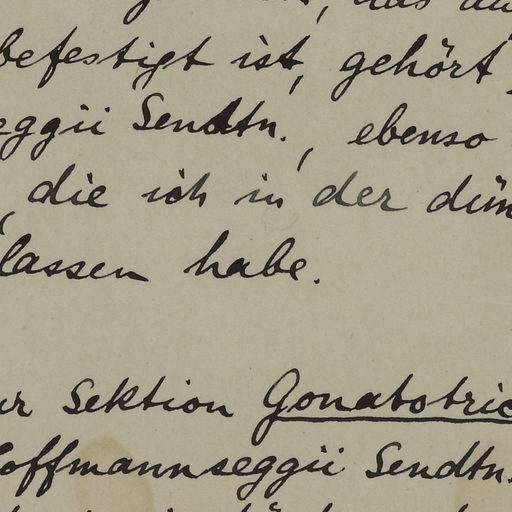 das
befestigt ist, gehört
eggii Sendtn., ebenso
, die ich in der dün
lassen habe.
ur Sektion Gonatotric
Hoffmannseggii Sendtn.